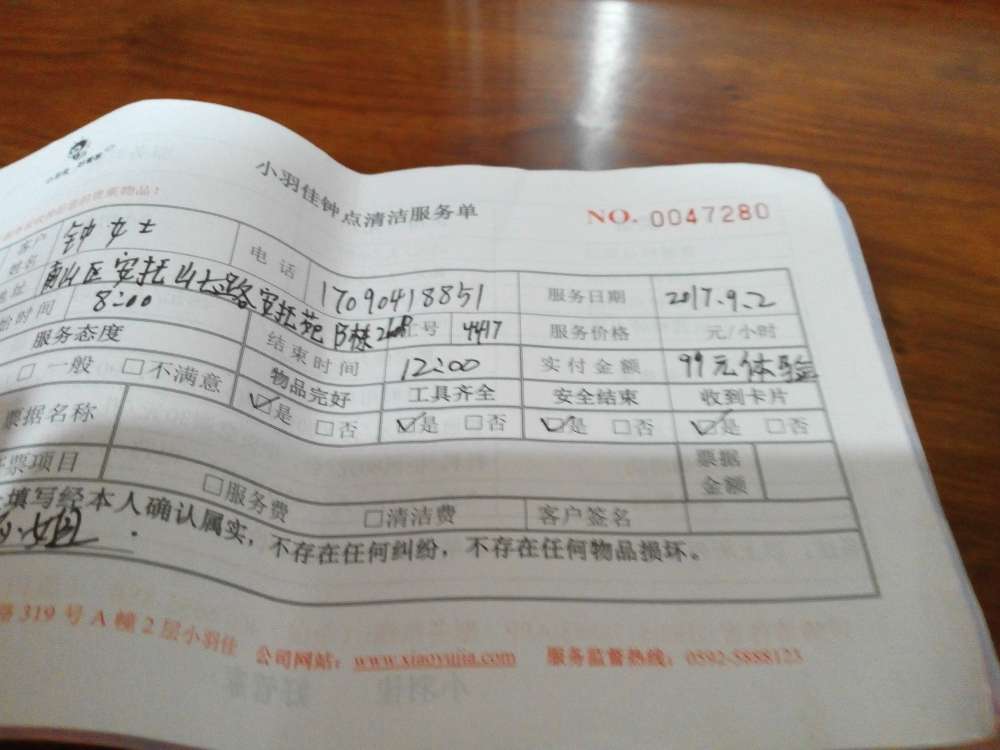 小羽佳钟点清洁服务单
NO. 0047280
客户姓名 钟女士 电话 17090418851 服务日期 2017.9.2
地址 南山区安托山七路安托苑B栋 工号 4417 服务价格 元/小时
始时间 8:00 结束时间 12:00 实付金额 99元体验
服务态度 物品完好 工具齐全 安全结束 收到卡片
□一般 □不满意 ☑是 □否 ☑是 □否 ☑是 □否 ☑是 □否
票据名称 票据金额
票项目 □服务费 □清洁费 客户签名
填写经本人确认属实，不存在任何纠纷，不存在任何物品损坏。
路319号A幢2层小羽佳 公司网站：www.xiaoyujia.com 服务监督热线：0592-5888123